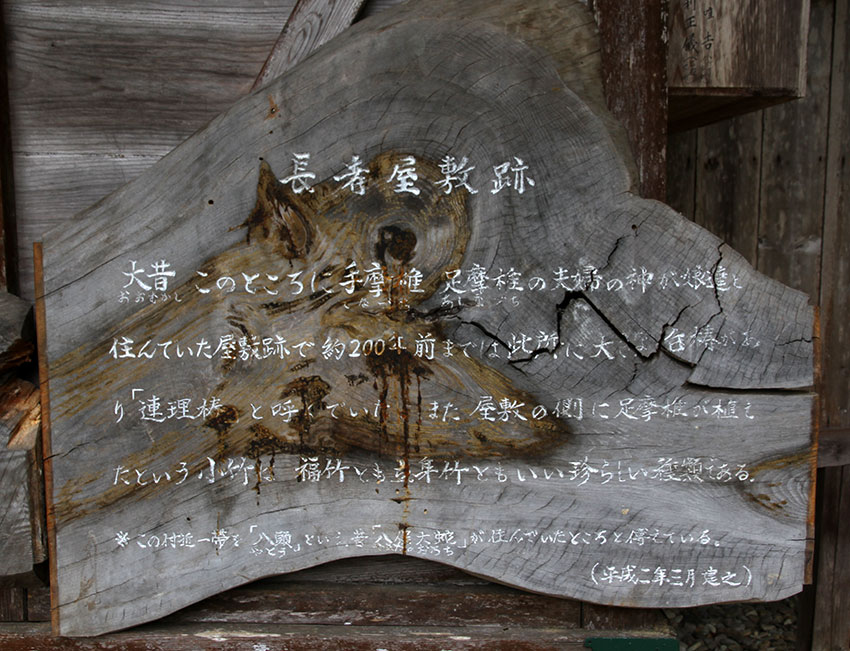 長者屋敷跡
大昔 このところに手摩椎 足摩椎の夫婦の神が娘達と
おおむかし あしなづち
住んでいた屋敷跡で約200年前までは此所に大きな白椿があ
り「連理椿」と呼んでいた。また屋敷の側に足摩椎が植え
たという小竹は 福竹とも 竹ともいい珍らしい種類である。
※この付近一帯を「八頭」といい昔「八俣大蛇」が住んでいたところと伝えている。
(平成二年三月建之)